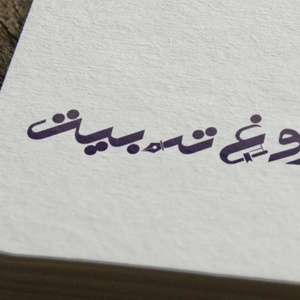 روغ تربیت